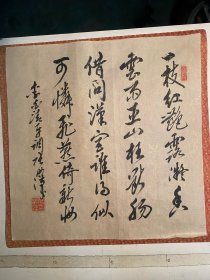 一枝紅艷露凝香
雲雨巫山枉斷腸
借問漢宮誰得似
可憐飛燕倚新妝